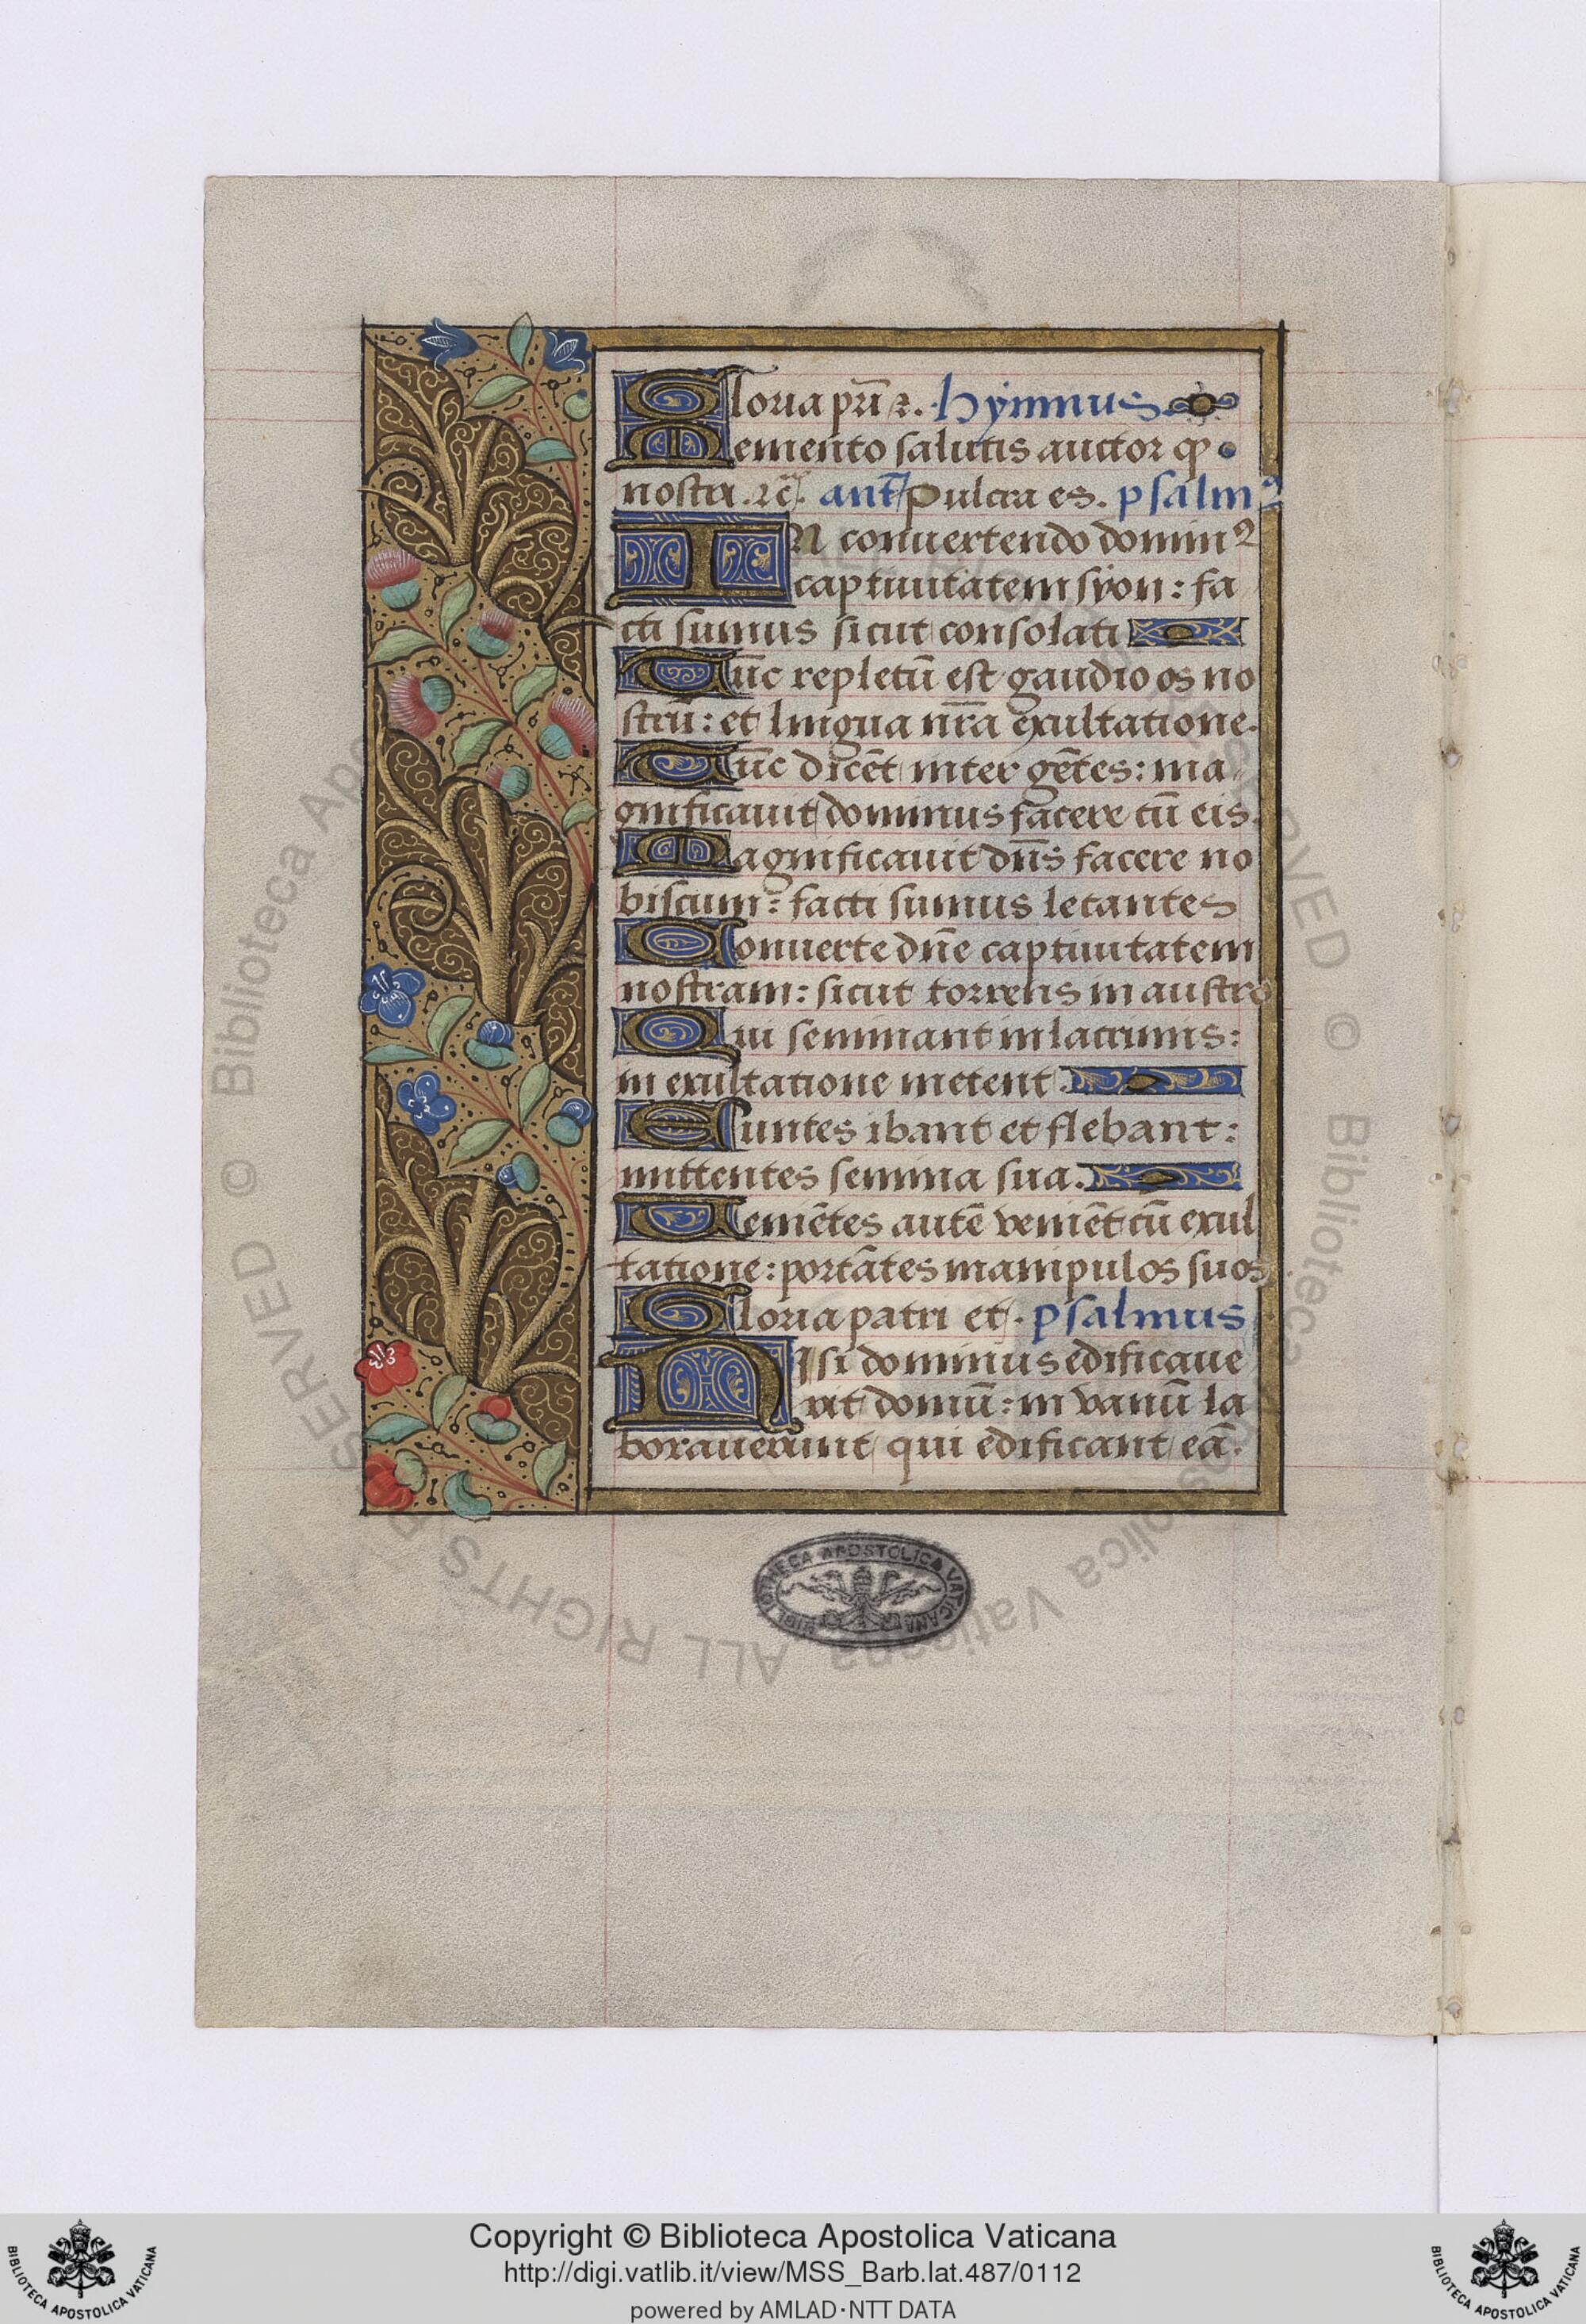 Gloria pr̄i ⁊. hymnus
Memento salutis auctor ꝙ
nostri. ⁊c̄. ant̄ Pulcra es. psalmꝰ
IN conuertendo dominꝰ
captiuitatem syon: fa
cti sumus sicut consolati
Tūc repletū est gaudio os no
strū: et lingua nr̄a exultatione.
Tūc dicēt inter gētes: ma
gnificauit dominus facere cū eis.
Magnificauit dn̄s facere no
biscum: facti sumus letantes
Conuerte dn̄e captiuitatem
nostram: sicut torrens in austro
Qui seminant in lacrimis:
in exultatione metent.
Euntes ibant et flebant:
mittentes semina sua.
Ueniētes autē veniēt cū exul
tatione: portātes manipulos suos
Gloria patri et. psalmus
NIsi dominus edificaue
rit domū: in vanū la
borauerunt qui edificant eā.
BIBLIOTHECA APOSTOLICA VATICANA
© Biblioteca Apostolica Vaticana ALL RIGHTS RESERVED
Copyright © Biblioteca Apostolica Vaticana
http://digi.vatlib.it/view/MSS_Barb.lat.487/0112
powered by AMLAD·NTT DATA
BIBLIOTECA APOSTOLICA VATICANA
BIBLIOTECA APOSTOLICA VATICANA